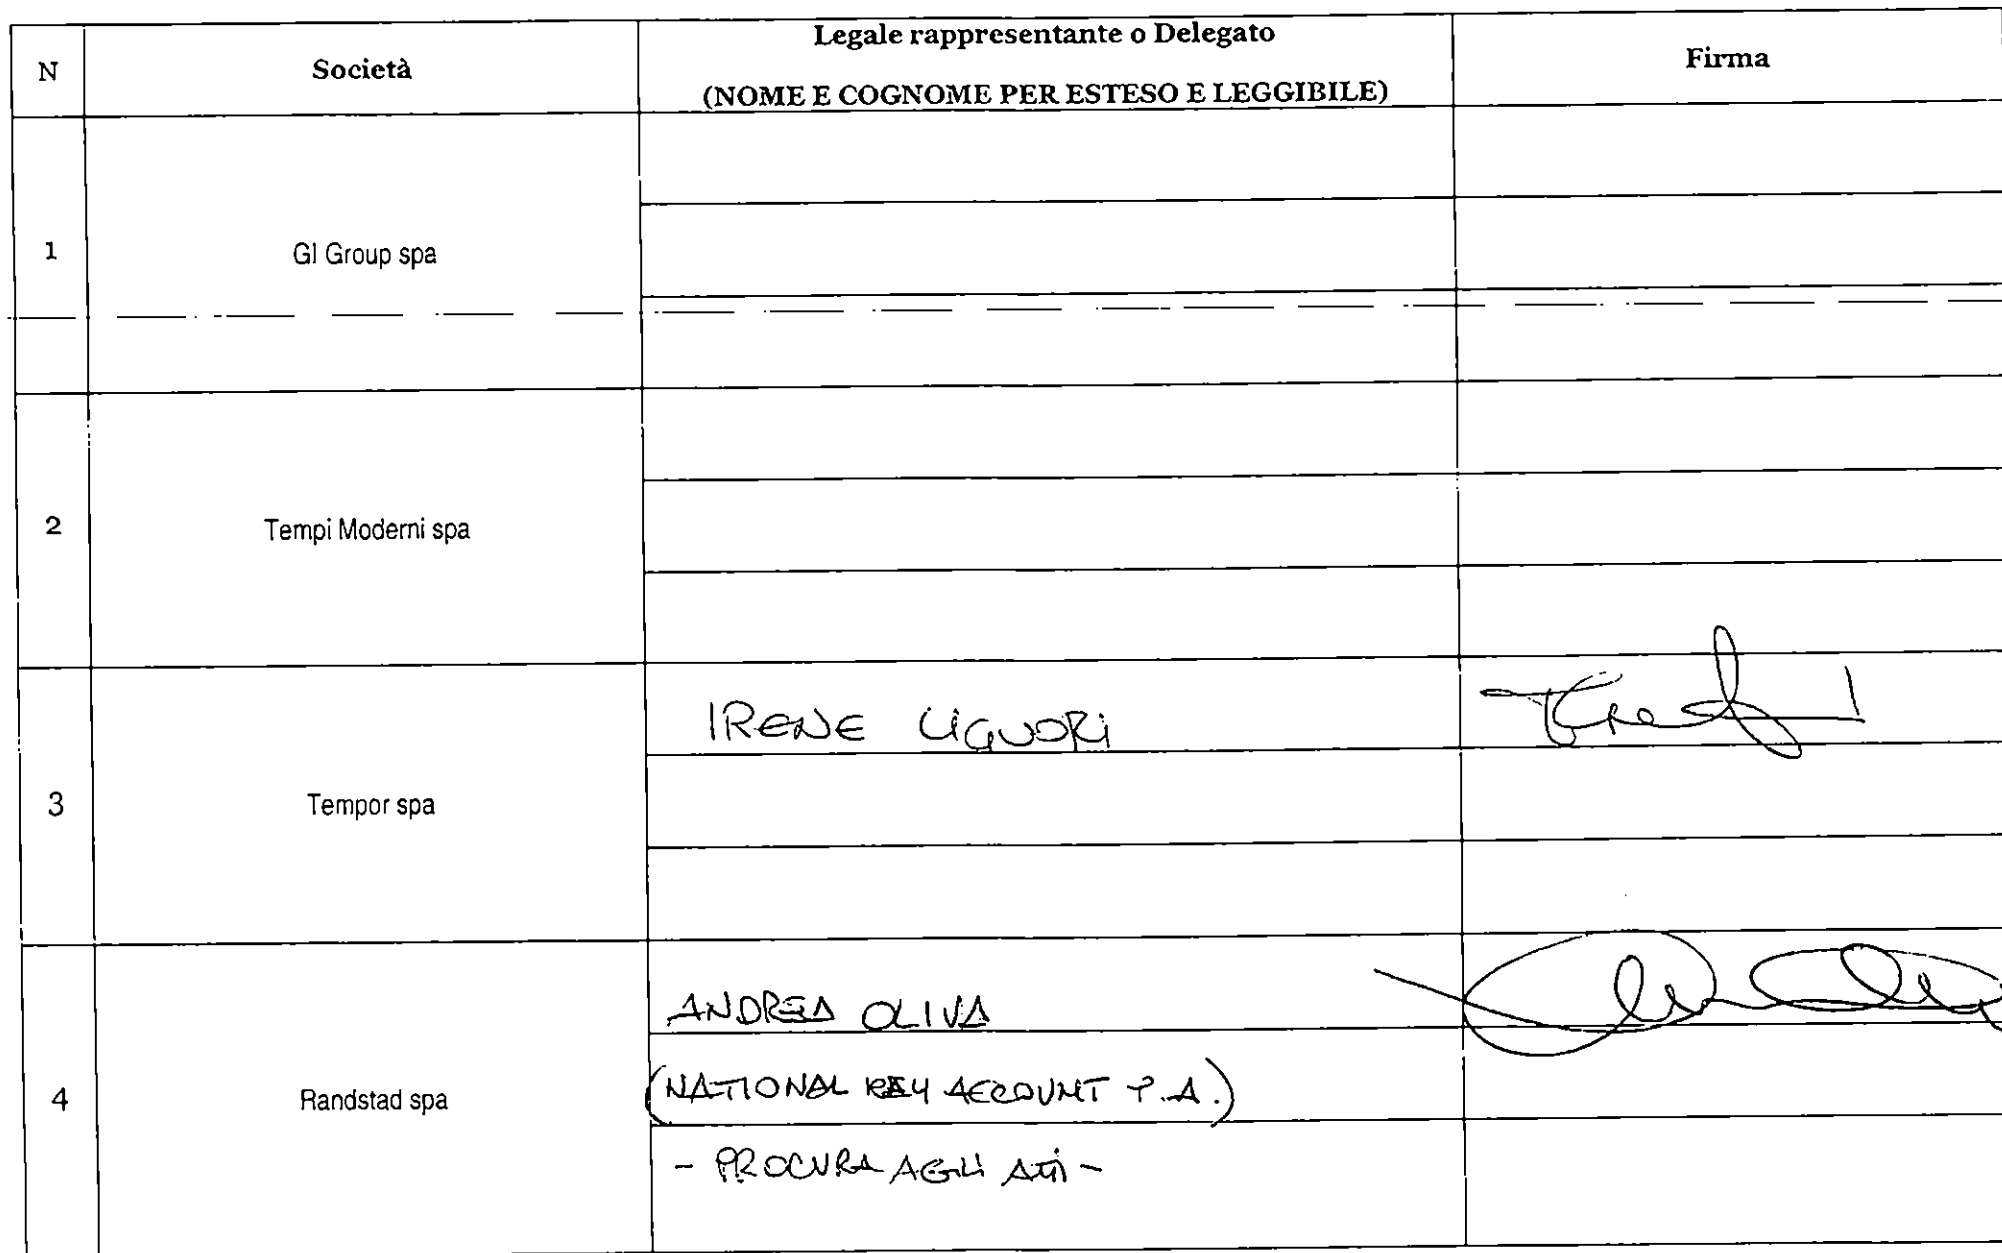 N
Società
Legale rappresentante o Delegato
(NOME E COGNOME PER ESTESO E LEGGIBILE)
Firma
1
GI Group spa
2
Tempi Moderni spa
3
Tempor spa
IRENE LIGUORI
4
Randstad spa
ANDREA OLIVA
(NATIONAL KEY ACCOUNT P.A.)
- PROCURA AGLI ATTI -